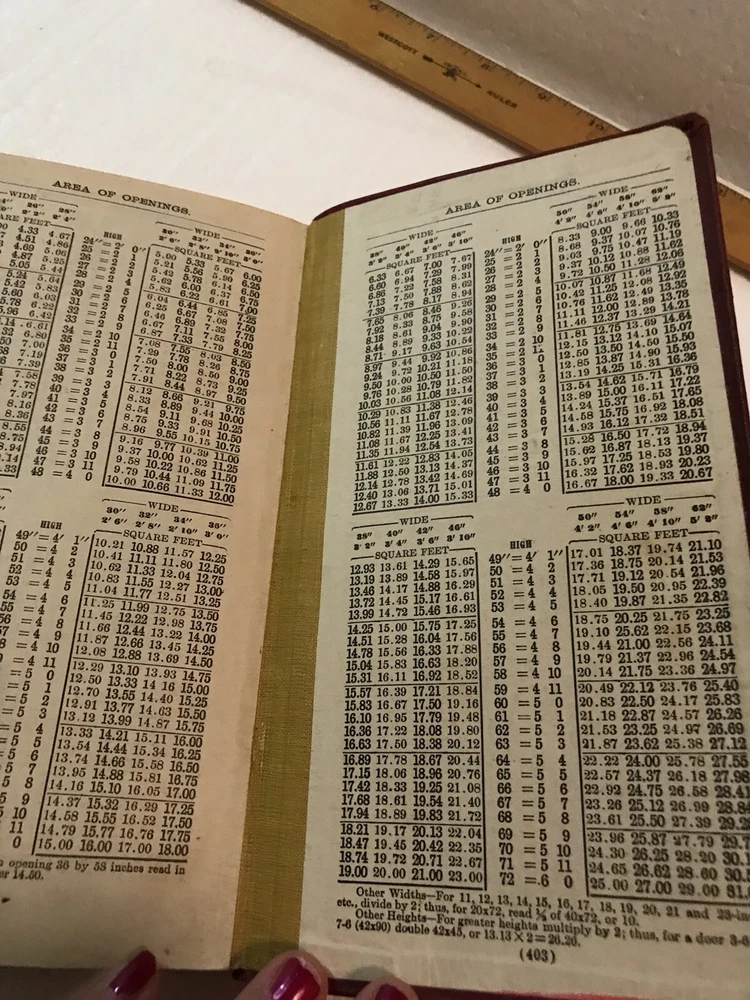 AREA OF OPENINGS.
WIDE
26" 28"
2' 2" 2' 4"
4.33 4.67
4.51 4.86
4.69 5.06
4.87 5.25
5.05 5.44
5.24 5.64
5.42 5.83
5.60 6.03
5.78 6.22
5.96 6.42
HIGH
WIDE
30" 32" 34" 36"
2' 6" 2' 8" 2' 10" 3' 0"
SQUARE FEET
24"=2' 0" 5.00 5.33 5.67 6.00
25 =2 1 5.21 5.56 5.90 6.25
26 =2 2 5.42 5.78 6.14 6.50
27 =2 3 5.62 6.00 6.37 6.75
28 =2 4 5.83 6.22 6.61 7.00
29 =2 5 6.04 6.44 6.85 7.25
30 =2 6 6.25 6.67 7.08 7.50
31 =2 7 6.46 6.89 7.32 7.75
32 =2 8 6.67 7.11 7.55 8.00
33 =2 9 6.87 7.33 7.79 8.25
34 =2 10 7.08 7.55 8.03 8.50
35 =2 11 7.29 7.78 8.26 8.75
36 =3 0 7.50 8.00 8.50 9.00
37 =3 1 7.71 8.22 8.73 9.25
38 =3 2 7.91 8.44 8.97 9.50
39 =3 3 8.12 8.66 9.21 9.75
40 =3 4 8.33 8.89 9.44 10.00
41 =3 5 8.54 9.11 9.68 10.25
42 =3 6 8.75 9.33 9.91 10.50
43 =3 7 8.96 9.55 10.15 10.75
44 =3 8 9.16 9.77 10.39 11.00
45 =3 9 9.37 10.00 10.62 11.25
46 =3 10 9.58 10.22 10.86 11.50
47 =3 11 9.79 10.44 11.09 11.75
48 =4 0 10.00 10.66 11.33 12.00
HIGH
WIDE
30" 32" 34" 36"
2' 6" 2' 8" 2' 10" 3' 0"
SQUARE FEET
49"=4' 1" 10.21 10.88 11.57 12.25
50 =4 2 10.41 11.11 11.80 12.50
51 =4 3 10.62 11.33 12.04 12.75
52 =4 4 10.83 11.55 12.27 13.00
53 =4 5 11.04 11.77 12.51 13.25
54 =4 6 11.25 11.99 12.75 13.50
55 =4 7 11.45 12.22 12.98 13.75
=4 8 11.66 12.44 13.22 14.00
=4 9 11.87 12.66 13.45 14.25
=4 10 12.08 12.88 13.69 14.50
=4 11 12.29 13.10 13.93 14.75
=5 0 12.50 13.33 14 16 15.00
=5 1 12.70 13.55 14.40 15.25
=5 2 12.91 13.77 14.63 15.50
=5 3 13.12 13.99 14.87 15.75
=5 4 13.33 14.21 15.11 16.00
=5 5 13.54 14.44 15.34 16.25
=5 6 13.74 14.66 15.58 16.50
5 7 13.95 14.88 15.81 16.75
5 8 14.16 15.10 16.05 17.00
5 9 14.37 15.32 16.29 17.25
10 14.58 15.55 16.52 17.50
11 14.79 15.77 16.76 17.75
0 15.00 16.00 17.00 18.00
opening 36 by 58 inches read in
14.50.
AREA OF OPENINGS.
WIDE
38" 40" 42" 46"
3' 2" 3' 4" 3' 6" 3' 10"
SQUARE FEET
HIGH
WIDE
50" 54" 58" 62"
4' 2" 4' 6" 4' 10" 5' 2"
SQUARE FEET
6.33 6.67 7.00 7.67 24"=2' 0" 8.33 9.00 9.66 10.33
6.60 6.94 7.29 7.99 25 =2 1 8.68 9.37 10.07 10.76
6.86 7.22 7.58 8.31 26 =2 2 9.03 9.75 10.47 11.19
7.12 7.50 7.88 8.62 27 =2 3 9.37 10.12 10.88 11.62
7.39 7.78 8.17 8.94 28 =2 4 9.72 10.50 11.28 12.06
7.65 8.06 8.46 9.26 29 =2 5 10.07 10.87 11.68 12.49
7.92 8.33 8.75 9.58 30 =2 6 10.42 11.25 12.08 12.92
8.18 8.61 9.04 9.90 31 =2 7 10.76 11.62 12.49 13.35
8.44 8.89 9.33 10.22 32 =2 8 11.11 12.00 12.89 13.78
8.71 9.17 9.63 10.54 33 =2 9 11.46 12.37 13.29 14.21
8.97 9.44 9.92 10.86 34 =2 10 11.81 12.75 13.69 14.64
9.24 9.72 10.21 11.18 35 =2 11 12.15 13.12 14.10 15.07
9.50 10.00 10.50 11.50 36 =3 0 12.50 13.50 14.50 15.50
9.76 10.28 10.79 11.82 37 =3 1 12.85 13.87 14.90 15.93
10.03 10.56 11.08 12.14 38 =3 2 13.19 14.25 15.31 16.36
10.29 10.83 11.38 12.46 39 =3 3 13.54 14.62 15.71 16.79
10.56 11.11 11.67 12.78 40 =3 4 13.89 15.00 16.11 17.22
10.82 11.39 11.96 13.09 41 =3 5 14.24 15.37 16.51 17.65
11.08 11.67 12.25 13.41 42 =3 6 14.58 15.75 16.92 18.08
11.35 11.94 12.54 13.73 43 =3 7 14.93 16.12 17.32 18.51
11.61 12.22 12.83 14.05 44 =3 8 15.28 16.50 17.72 18.94
11.88 12.50 13.13 14.37 45 =3 9 15.62 16.87 18.13 19.37
12.14 12.78 13.42 14.69 46 =3 10 15.97 17.25 18.53 19.80
12.40 13.06 13.71 15.01 47 =3 11 16.32 17.62 18.93 20.23
12.67 13.33 14.00 15.33 48 =4 0 16.67 18.00 19.33 20.67
WIDE
38" 40" 42" 46"
3' 2" 3' 4" 3' 6" 3' 10"
SQUARE FEET
HIGH
WIDE
50" 54" 58" 62"
4' 2" 4' 6" 4' 10" 5' 2"
SQUARE FEET
12.93 13.61 14.29 15.65 49"=4' 1" 17.01 18.37 19.74 21.10
13.19 13.89 14.58 15.97 50 =4 2 17.36 18.75 20.14 21.53
13.46 14.17 14.88 16.29 51 =4 3 17.71 19.12 20.54 21.96
13.72 14.45 15.17 16.61 52 =4 4 18.05 19.50 20.95 22.39
13.99 14.72 15.46 16.93 53 =4 5 18.40 19.87 21.35 22.82
14.25 15.00 15.75 17.25 54 =4 6 18.75 20.25 21.75 23.25
14.51 15.28 16.04 17.56 55 =4 7 19.10 25.62 22.15 23.68
14.78 15.56 16.33 17.88 56 =4 8 19.44 21.00 22.56 24.11
15.04 15.83 16.63 18.20 57 =4 9 19.79 21.37 22.96 24.54
15.31 16.11 16.92 18.52 58 =4 10 20.14 21.75 23.36 24.97
15.57 16.39 17.21 18.84 59 =4 11 20.49 22.12 23.76 25.40
15.83 16.67 17.50 19.16 60 =5 0 20.83 22.50 24.17 25.83
16.10 16.95 17.79 19.48 61 =5 1 21.18 22.87 24.57 26.26
16.36 17.22 18.08 19.80 62 =5 2 21.53 23.25 24.97 26.69
16.63 17.50 18.38 20.12 63 =5 3 21.87 23.62 25.38 27.12
16.89 17.78 18.67 20.44 64 =5 4 22.22 24.00 25.78 27.55
17.15 18.06 18.96 20.76 65 =5 5 22.57 24.37 26.18 27.98
17.42 18.33 19.25 21.08 66 =5 6 22.92 24.75 26.58 28.41
17.68 18.61 19.54 21.40 67 =5 7 23.26 25.12 26.99 28.84
17.94 18.89 19.83 21.72 68 =5 8 23.61 25.50 27.39 29.2
18.21 19.17 20.13 22.04 69 =5 9 23.96 25.87 27.79 29.7
18.47 19.45 20.42 22.35 70 =5 10 24.30 26.25 28.20 30.1
18.74 19.72 20.71 22.67 71 =5 11 24.65 26.62 28.60 30.5
19.00 20.00 21.00 23.00 72 =6 0 25.00 27.00 29.00 31.0
Other Widths—For 11, 12, 13, 14, 15, 16, 17, 18, 19, 20, 21 and 23-in
etc., divide by 2; thus, for 20x72, read ½ of 40x72, or 10.
Other Heights—For greater heights multiply by 2; thus, for a door 3-6
7-6 (42x90) double 42x45, or 13.13 × 2 = 26.26.
(403)
WESTCOTT
RULER